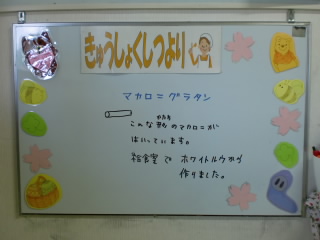 きゅうしょくしつより
マカロニグラタン
こんな形のマカロニが
かたち
はいっています。
給食室で ホワイトルウから
作りました。